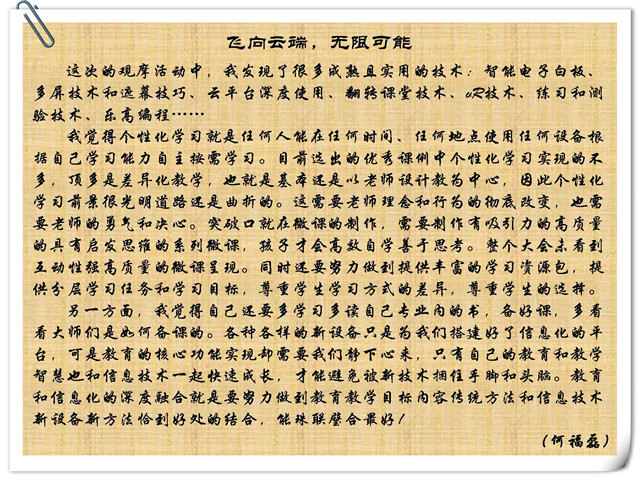 飞向云端，无限可能
这次的观摩活动中，我发现了很多成熟且实用的技术：智能电子白板、
多屏技术和选幕技巧、云平台深度使用、翻转课堂技术、uR技术、练习和测
验技术、乐高编程……
我觉得个性化学习就是任何人能在任何时间、任何地点使用任何设备根
据自己学习能力自主按需学习。目前选出的优秀课例中个性化学习实现的不
多，顶多是差异化教学，也就是基本还是以老师设计教为中心，因此个性化
学习前景很光明道路还是曲折的。这需要老师理念和行为的彻底改变，也需
要老师的勇气和决心。突破口就在微课的制作，需要制作有吸引力的高质量
的具有启发思维的系列微课，孩子才会高效自学善于思考。整个大会未看到
互动性强高质量的微课呈现。同时还要努力做到提供丰富的学习资源包，提
供分层学习任务和学习目标，尊重学生学习方式的差异，尊重学生的选择。
另一方面，我觉得自己还要多学习多读自己专业内的书，备好课，多看
看大师们是如何备课的。各种各样的新设备只是为我们搭建好了信息化的平
台，可是教育的核心功能实现却需要我们静下心来，只有自己的教育和教学
智慧也和信息技术一起快速成长，才能避免被新技术捆住手脚和头脑。教育
和信息化的深度融合就是要努力做到教育教学目标内容传统方法和信息技术
新设备新方法恰到好处的结合，能珠联璧合最好！
(何福磊)